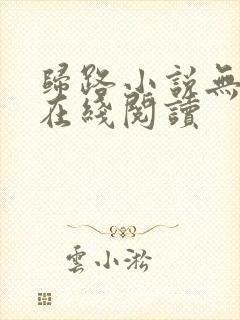 歸路小說無
在綫閱讀
雲小淞